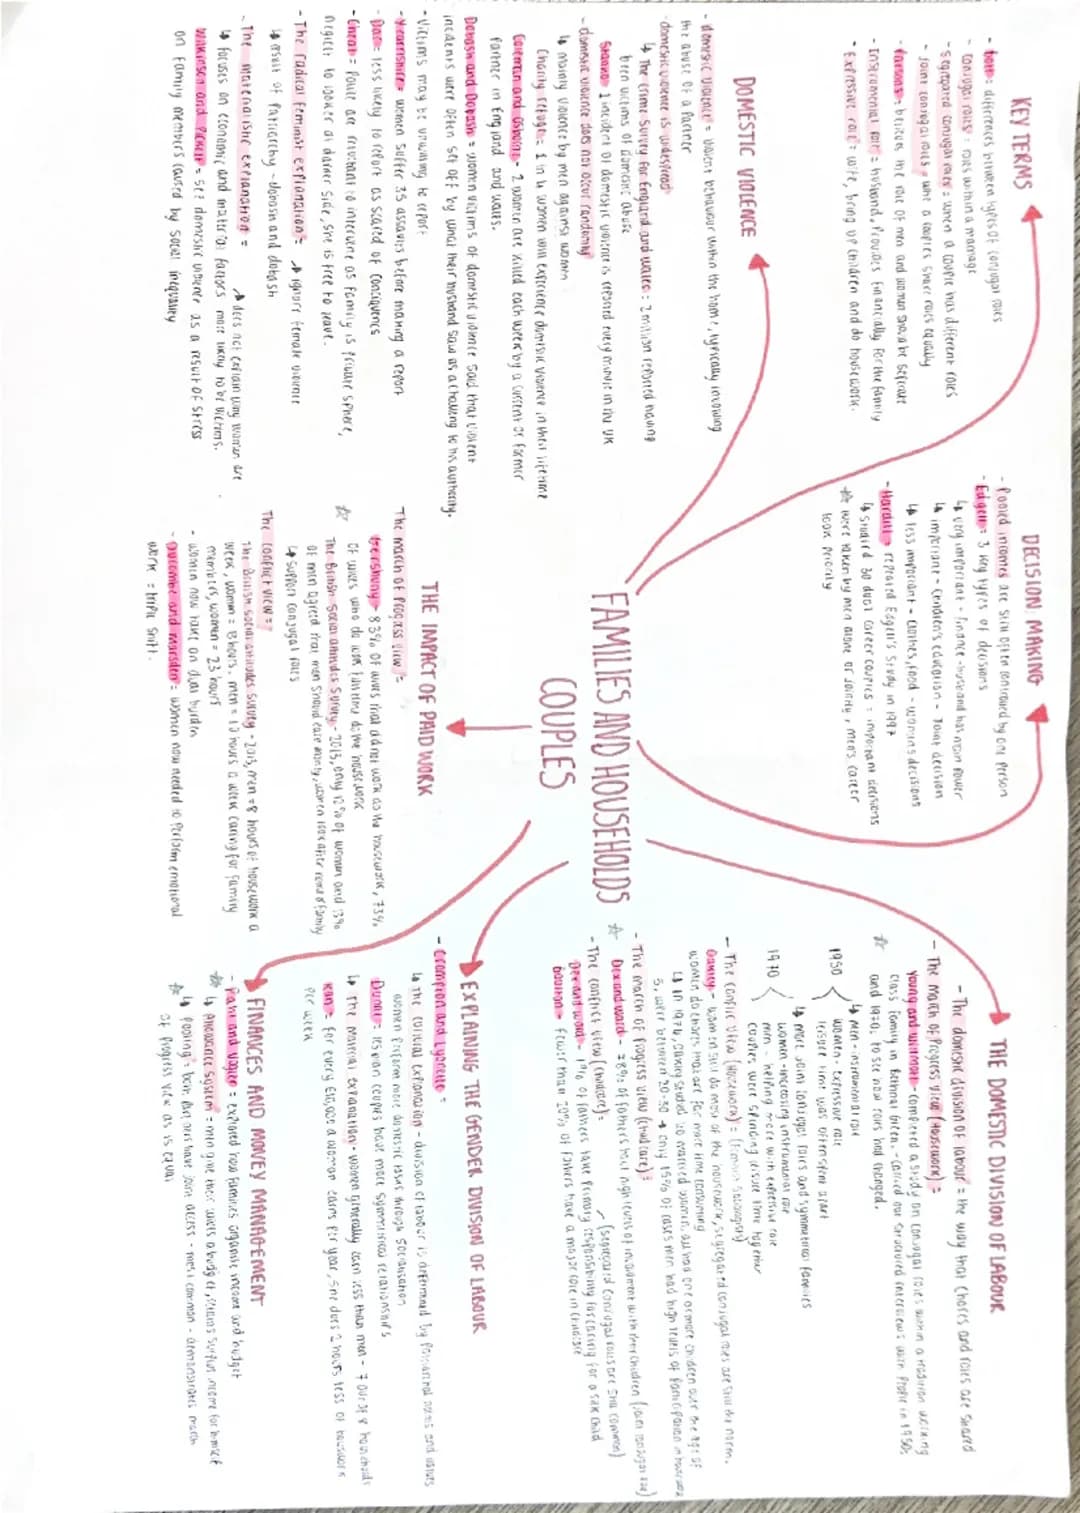 FAMILIES AND HOUSEHOLDS
COUPLES
KEY TERMS
- Bott = differences between types of conjugal roles
- Conjugal roles = roles within a marriage
- Segregated conjugal roles = when a couple has different roles
- Joint conjugal roles = when a couples share roles equally
- Parsons = believes the role of men and woman should be seperate
- Instrumental role = husband, Provides financially for the family
- Expressive role = wife, bring up children and do housework.
DECISION MAKING
- Pooled incomes are still often controlled by one person
- Edgell = 3 key types of decisions
↳ very important - finance - husband has main power
↳ important - children's education - Joint decision
↳ less important - clothes, food - womens decisions
- Hardill = repeated Edgell's Study in 1997
↳ Studied 30 dual career couples = important decisions
were taken by men alone or jointly, men's career
took priority
THE DOMESTIC DIVISION OF LABOUR
- The domestic division of labour = the way that chores and roles are shared
- The march of Progress view (Housework) =
Young and willmott - completed a study on conjugal roles within a tradition working
class family in Bethnal Green. - carried out structured interviews with people in 1950s
and 1970s to see how roles had changed.
1950
↳ men - instrumental role
women - expressive role
leisure time was often spent apart
1970
↳ more joint conjugal roles and symmetrical families
women - increasing instrumental role
men - helping more with expressive role
couples were spending leisure time together
- The conflict view (Housework) =
Oakley - women still do most of the housework, segregated conjugal roles are still the norm.
women do chores that are far more time consuming
↳ in 1974, Oakley studied 40 married women, all had one or more children over the age of
5, were between 20-30 → only 15% of cases men had high levels of participation in housework
- The march of Progress view (Childcare) =
Dex and ward - 78% of fathers had high levels of involvement with their children (joint conjugal role)
- The conflict view (Childcare) = (segregated conjugal roles are still common)
Dex and ward = 1% of fathers take primary responsibility for caring for a sick child
Boulton = fewer than 20% of fathers have a major role in childcare
DOMESTIC VIOLENCE
- domestic violence = violent behaviour within the home, typically involving
the abuse of a Partner
- domestic violence is widespread
↳ The crime survey for England and wales = 2 million reported having
been victims of domestic abuse
Stanko = 1 incident of domestic violence is reported every minute in the UK
- domestic violence does not occur randomly
↳ mainly violence by men against women
Charity refuge = 1 in 4 women will experience domestic violence in their lifetime
Coleman and Osborne - 2 women are killed each week by a current or former
Partner in England and wales.
Dobash and Dobash = women victims of domestic violence said that violent
incidents were often set off by what their husband saw as a challenge to his authority.
- Victims may be unwilling to report
- Yearnshire = women suffer 35 assaults before making a report
- Dar = less likely to report as scared of
- Cheal = Police are reluctant to intervene as family is private sphere,
neglect to look at darker side, she is free to leave.
- The radical feminist explanation = → ignore female violence
↳ result of Patriarchy - dobash and dobash
- The materialistic explanation = → does not explain why women are
↳ focuses on economic and material factors more likely to be victims.
Wilkinson and Pickett = see domestic violence as a result of stress
on family members caused by social inequality
THE IMPACT OF PAID WORK
The march of Progress view =
Gershuny = 83% of wives that did not work do the housework, 73%
of wives who do work full time do the housework
The British Social attitudes Survey - 2013, only 12% of women and 13%
of men agreed that men should earn money, women look after home & family
↳ Support conjugal roles
The conflict view =
The British social attitudes survey - 2013, men = 8 hours of housework a
week, women = 13 hours. men = 10 hours a week caring for family
members, women = 23 hours
- women now take on dual burden
- Duncombe and marsden = women now needed to perform emotional
work = triple shift.
EXPLAINING THE GENDER DIVISION OF LABOUR
- Crompton and Lyonette =
↳ the cultural explanation - division of labour is determined by patriarchal norms and values
women Perform more domestic tasks through socialisation
Dunne = lesbian couples have more symmetrical relationships
↳ The Material explanation - women generally earn less than men - 7 out of 8 households
Kan = for every £10,000 a woman earns per year, she does 2 hours less of housework
Per week
FINANCES AND MONEY MANAGEMENT
- Pahl and Vogler = explored how families organise income and budget
↳ Allowance System = men give their wives a budget, retains surplus income for himself
↳ pooling = both partners have joint access - most common - demonstrates march
of Progress view as is equal